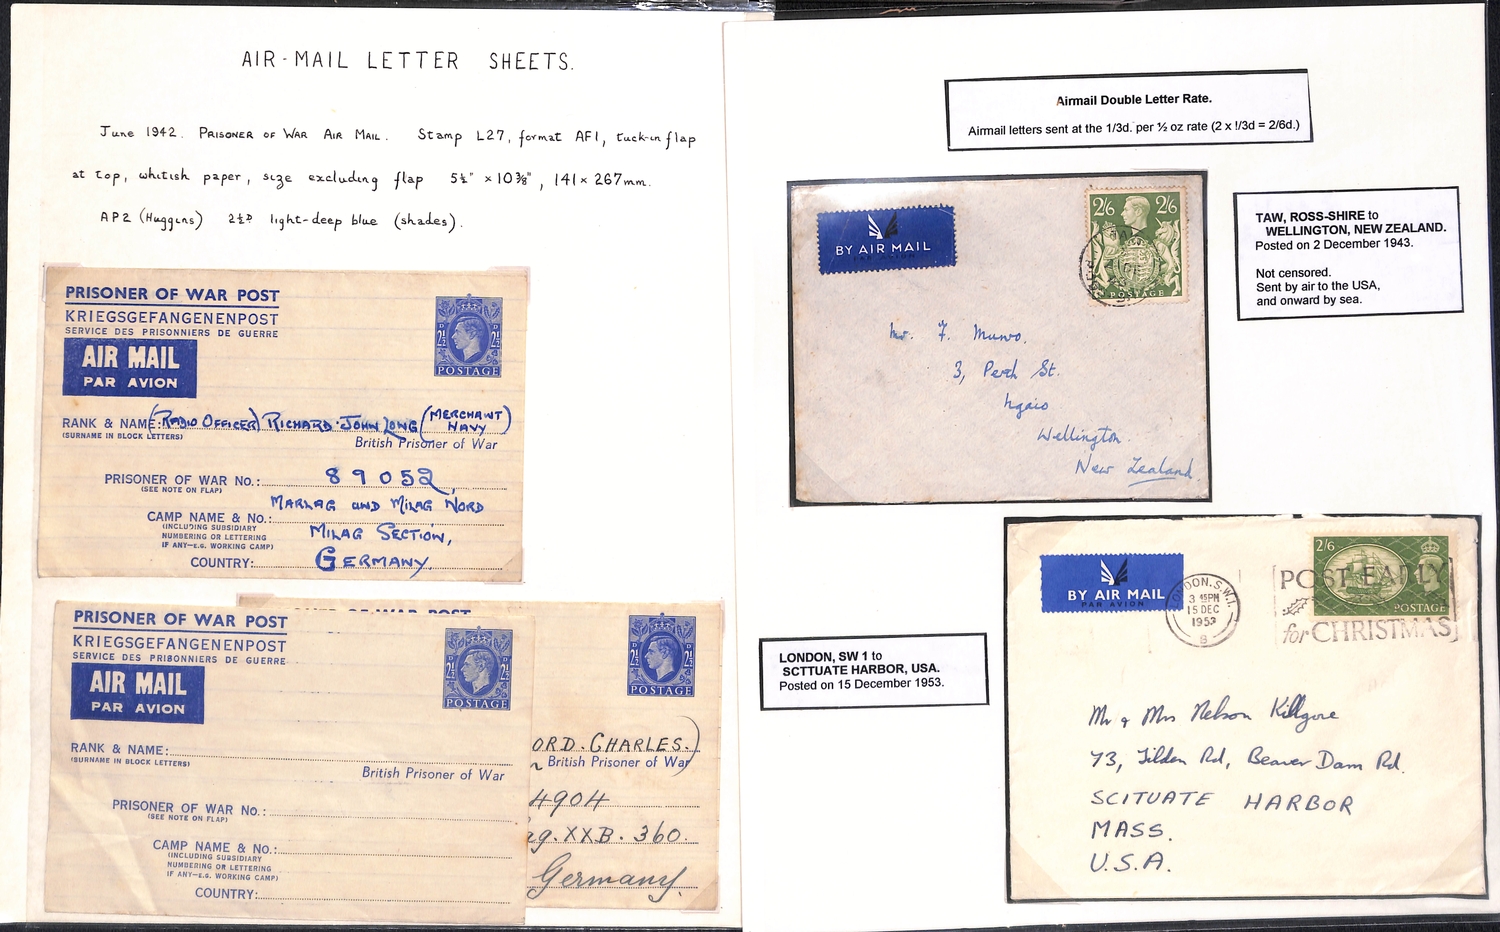 AIR-MAIL LETTER SHEETS.
June 1942. PRISONER OF WAR AIR MAIL. Stamp L27, format AF1, tuck-in flap
at top, whitish paper, size excluding flap 5½" × 10⅜", 141 × 267mm.
AP2 (Huggins) 2½D light-deep blue (shades).
PRISONER OF WAR POST
KRIEGSGEFANGENENPOST
SERVICE DES PRISONNIERS DE GUERRE
AIR MAIL
PAR AVION
2½D 2½D
POSTAGE
RANK & NAME: (RADIO OFFICER) RICHARD JOHN LONG (MERCHANT NAVY)
(SURNAME IN BLOCK LETTERS)
British Prisoner of War
PRISONER OF WAR No.: 89052,
(SEE NOTE ON FLAP)
MARLAG UND MILAG NORD
CAMP NAME & No.:
(INCLUDING SUBSIDIARY
NUMBERING OR LETTERING
IF ANY—E.G. WORKING CAMP)
MILAG SECTION,
COUNTRY: GERMANY.
PRISONER OF WAR POST
KRIEGSGEFANGENENPOST
SERVICE DES PRISONNIERS DE GUERRE
AIR MAIL
PAR AVION
2½D 2½D
POSTAGE
RANK & NAME:
(SURNAME IN BLOCK LETTERS)
British Prisoner of War
PRISONER OF WAR No.:
(SEE NOTE ON FLAP)
CAMP NAME & No.:
(INCLUDING SUBSIDIARY
NUMBERING OR LETTERING
IF ANY—E.G. WORKING CAMP)
COUNTRY:
OF WAR POST
2½D 2½D
POSTAGE
ORD. CHARLES.)
British Prisoner of War
4904
ag. XXB. 360.
Germany.
Airmail Double Letter Rate.
Airmail letters sent at the 1/3d. per ½ oz rate (2 x !/3d = 2/6d.)
BY AIR MAIL
PAR AVION
2/6 2/6
POSTAGE
Mr. F. Munro.
3, Perth St.
Ngaio
Wellington.
New Zealand
TAW, ROSS-SHIRE to
WELLINGTON, NEW ZEALAND.
Posted on 2 December 1943.
Not censored.
Sent by air to the USA,
and onward by sea.
LONDON, SW 1 to
SCTTUATE HARBOR, USA.
Posted on 15 December 1953.
BY AIR MAIL
PAR AVION
LONDON. S.W.1.
3 45PM
15 DEC
1953
8
POST EARLY
for CHRISTMAS
2/6
POSTAGE
Mr & Mrs Nelson Killgore
73, Tilden Rd, Beaver Dam Rd.
SCITUATE HARBOR
MASS.
U.S.A.